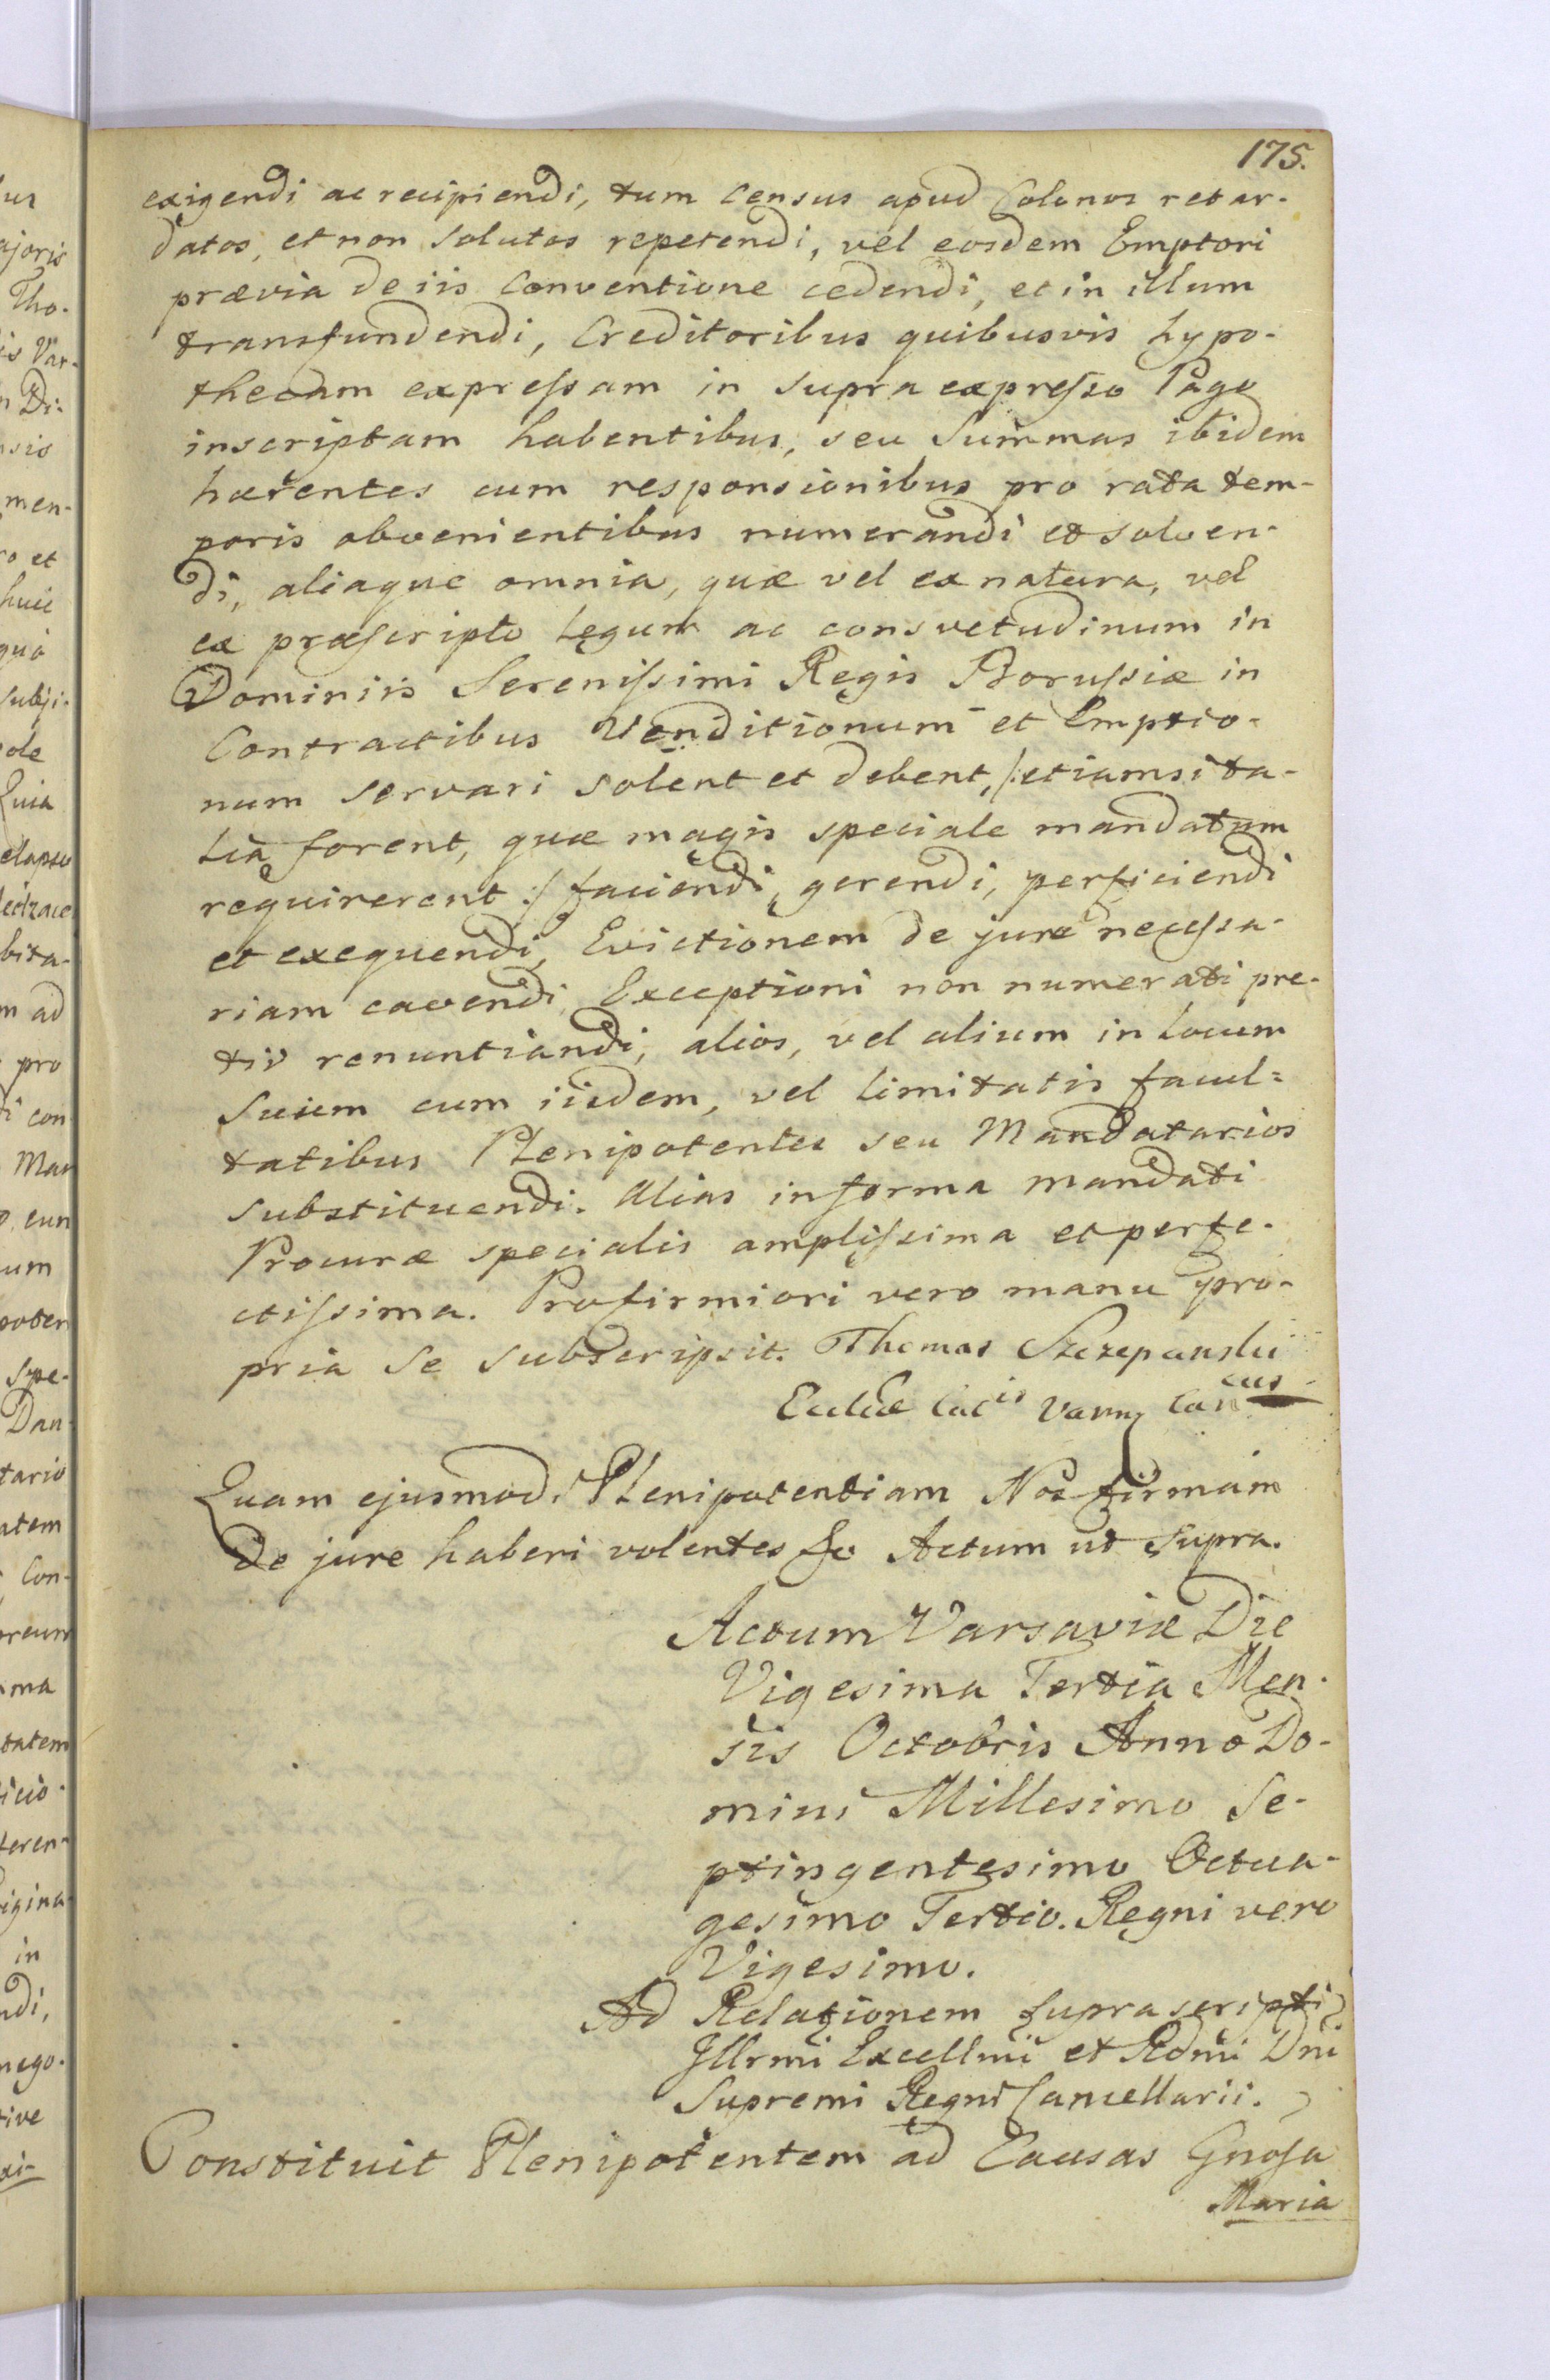 175.
exigendi ac recipiendi, tum Census apud Colonos retar-
datos, et non solutos repetendi, vel eosdem Emptori
prævia de iis Conventione cedendi, et in illum
transfundendi, Creditoribus quibusvis hypo-
thecam expressam in supra expresso Pago
inscriptam habentibus, seu Summas ibidem
hærentes cum responsionibus pro rata tem-
poris obvenientibus numerandi et solven-
di, aliaque omnia, quæ vel ex natura, vel
ex præscripto Legum ac consvetudinum in
Dominiis Serenissimi Regis Borussiæ in
Contractibus Venditionum et Emptio-
num servari solent et debent, /: etiamsi ta-
lia forent, quæ magis speciale mandatum
requirerent :/ faciendi, gerendi, perficiendi
et exequendi, Evictionem de jure necessa-
riam cavendi, Exceptioni non numerati pre-
tio renuntiandi, alios, vel alium in Locum
Suum cum iisdem, vel limitatis facul=
tatibus Plenipotentes seu Mandatarios
substituendi. Alias in forma mandati
Procuræ specialis amplissima et perfe-
ctissima. Pro firmiori vero manu pro-
pria se subscripsit. Thomas Szczepanski
Ecclæ Cac is Varm Can cus
Quam ejusmodi Plenipotentiam Nos firmam
de jure haberi volentes &c Actum ut supra.
Actum Varsaviæ Die
Vigesima Tertia Men-
sis Octobris Anno Do-
mini Millesimo Se-
ptingentesimo Octua-
gesimo Tertio. Regni vero
Vigesimo.
Ad Relationem suprascripti
Jllrmi Excellmi et Rdmi Dni
Supremi Regni Cancellarii.
Constituit Plenipotentem ad Causas Gnosa
Maria